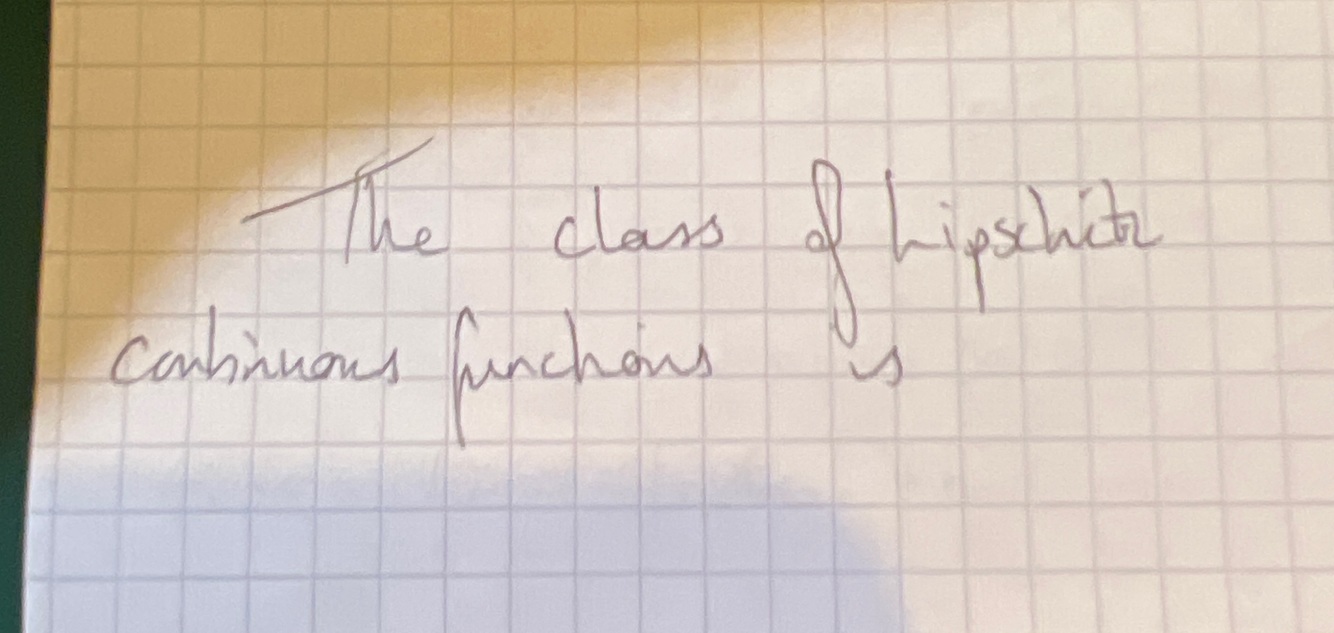 The class of Lipschitz
continuous functions is